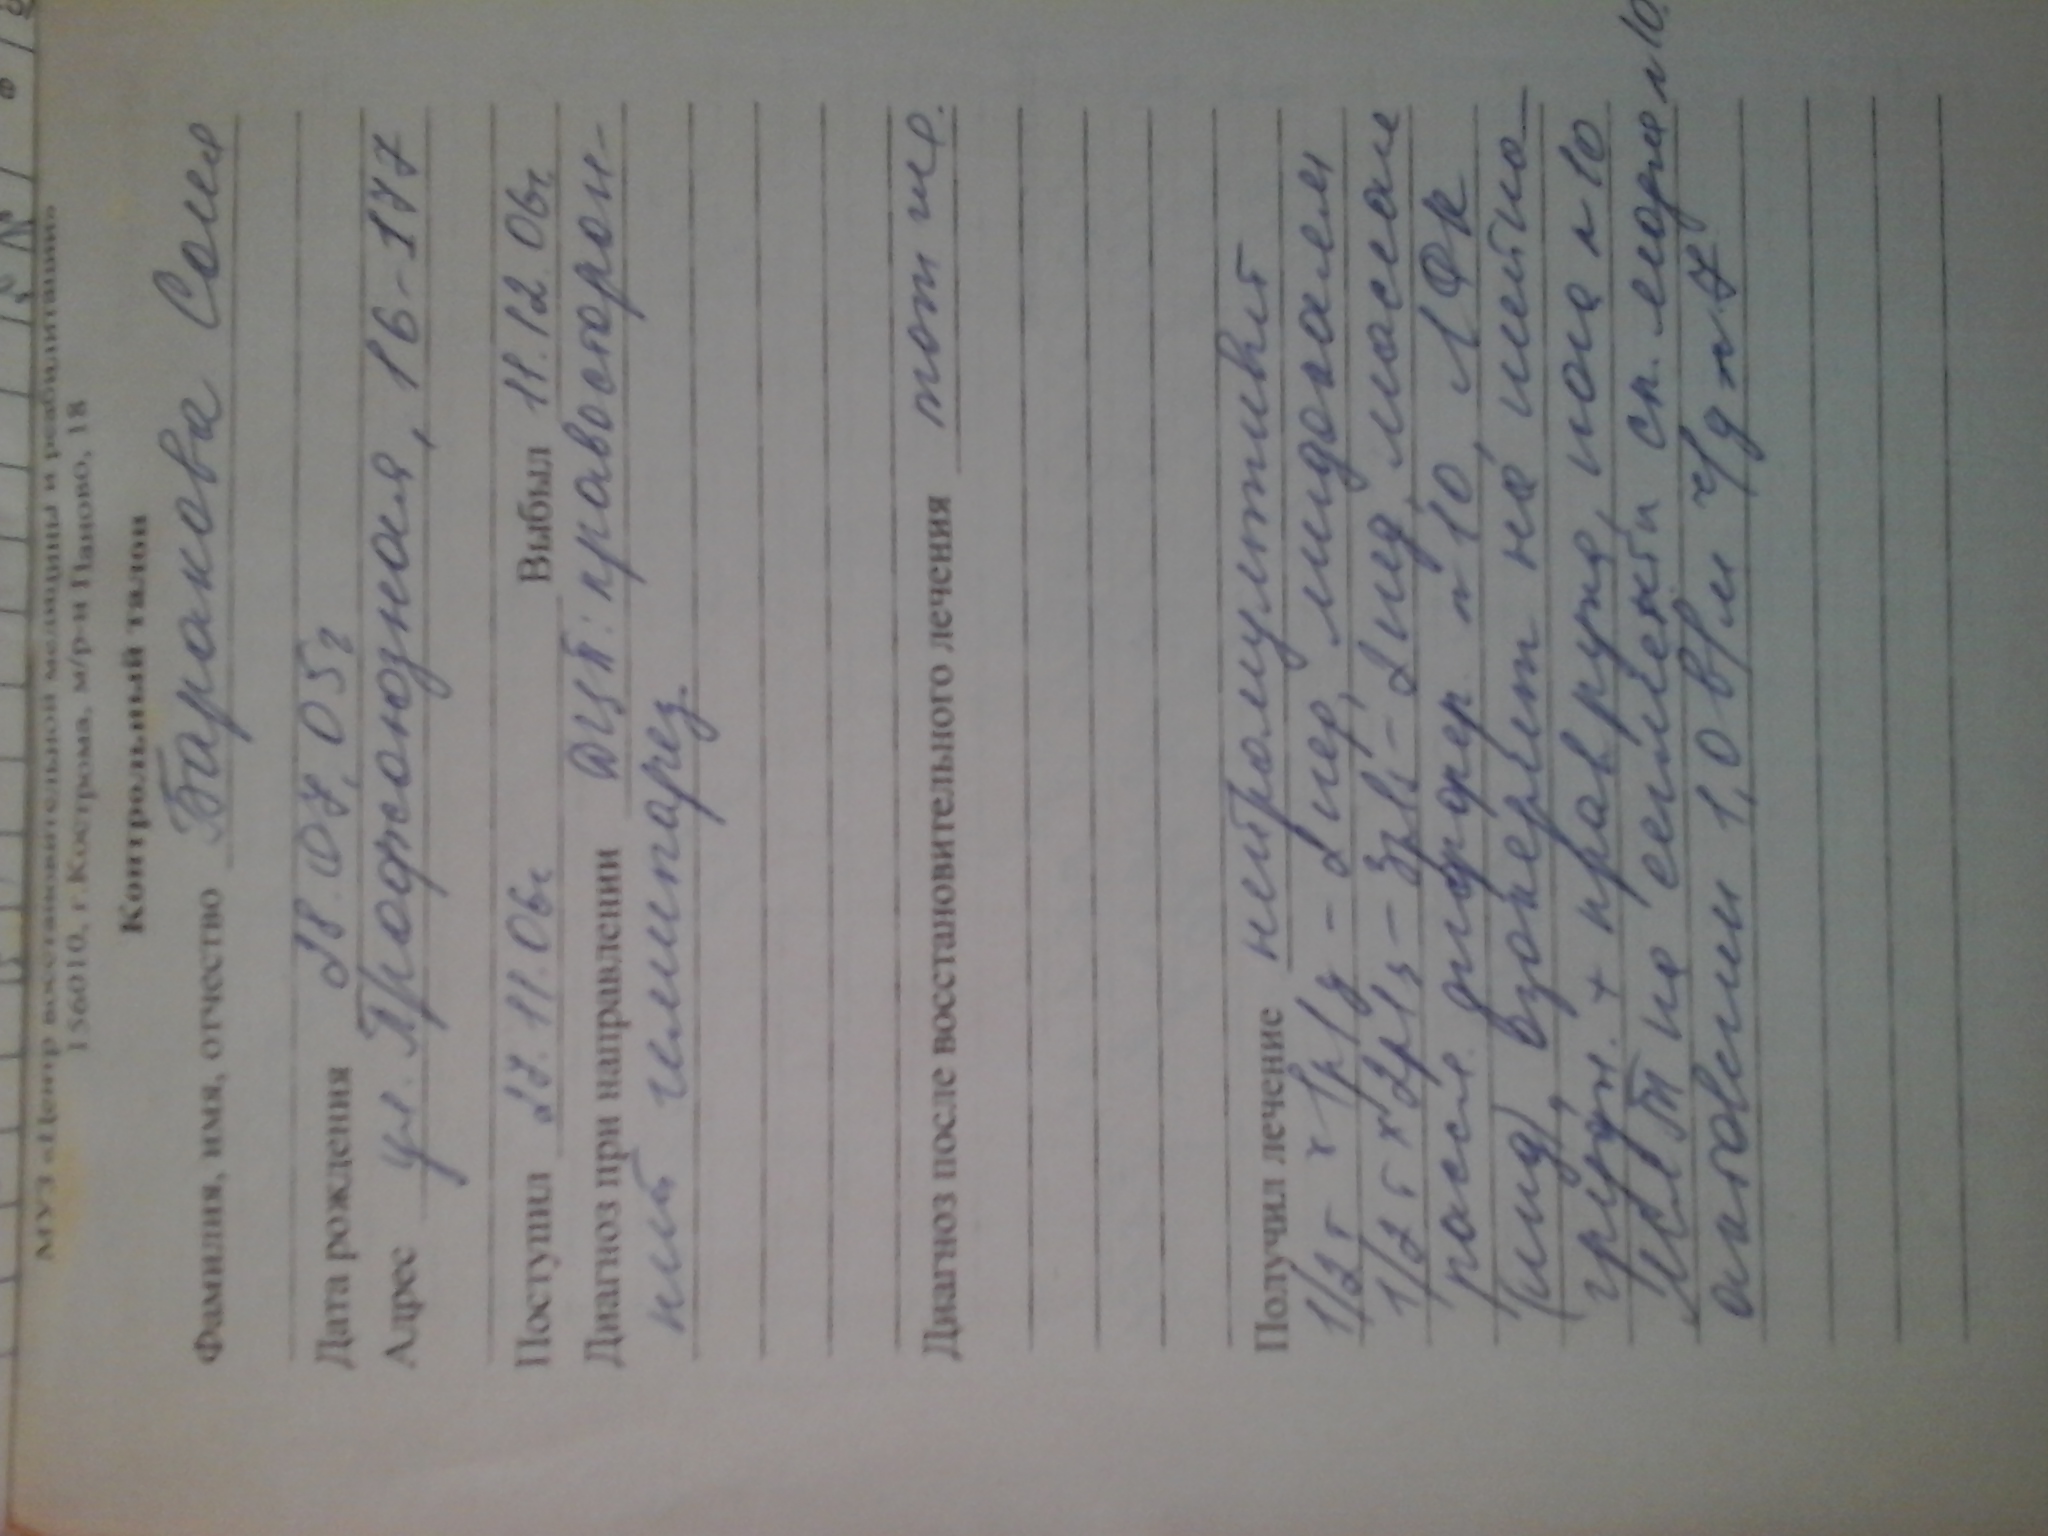 МУЗ «Центр восстановительной медицины и реабилитации»
156010, г. Кострома, м/р-н Паново, 18
Контрольный талон
Фамилия, имя, отчество Баракова Соня
Дата рождения 28.07.05г
Адрес ул. Профсоюзная, 16-177
Поступил 27.11.06г. Выбыл 11.12.06г.
Диагноз при направлении ДЦП: правосторон-
ний гемипарез.
Диагноз после восстановительного лечения тот же.
Получил лечение нейромультивит
1/2т х 1р/д - 2 нед, мидокалм
1/2т х 2р/д - 3р/д - 2 нед, массаж
рассл. диффер. n 10, ЛФК
(инд), на шейно-
грудн. + прав рука, нога n 10
на сегменты сп. мозга n 10.
актовегин 1,0 в/м ч/д n 7